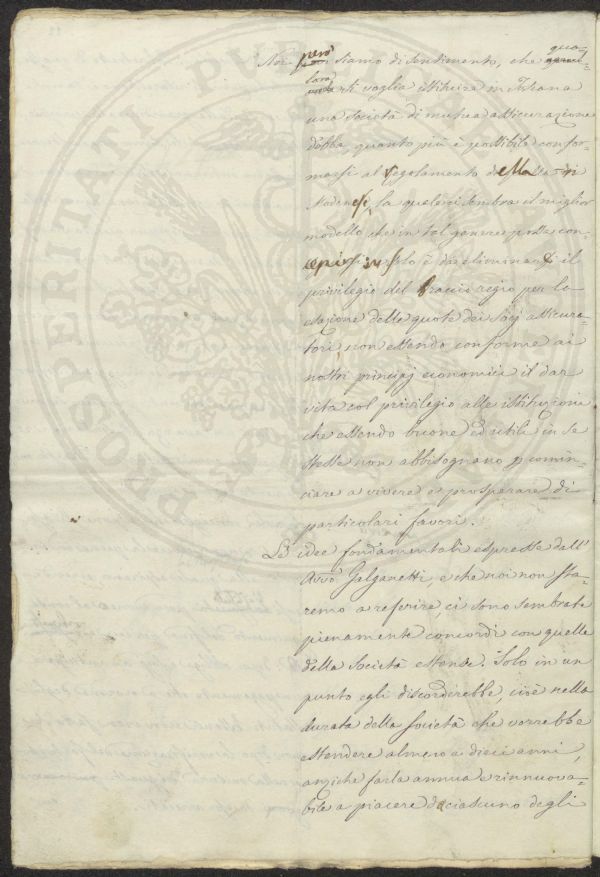 Noi però siamo di sentimento, che qua-
lora si voglia istituire in Toscana
una società di mutua assicurazione
debba quanto più è possibile confor-
marsi al regolamento della
Modenesi, la quale ci sembra il miglior
modello che in tal genere possa con-
è da eliminarsi il
privilegio del braccio regio per la
esazione delle quote dei socj assicura-
tori non essendo conforme ai
nostri principj economici il dar
vita col privilegio alle istituzioni
che essendo buone ed utili in se
stesse non abbisognano p comin-
ciare a vivere e prosperare di
particolari favori.
Le idee fondamentali espresse dall'
Avvo Galganetti, e che noi non sta-
remo a referire, ci sono sembrate
pienamente concordi con quelle
della Società estense. Solo in un
punto egli discorderebbe cioè nella
durata della Società che vorrebbe
estendere almeno a dieci anni,
anziche farla annua e rinnuova-
bile a piacere di ciascuno degli
PROSPERITATI PUBLICAE